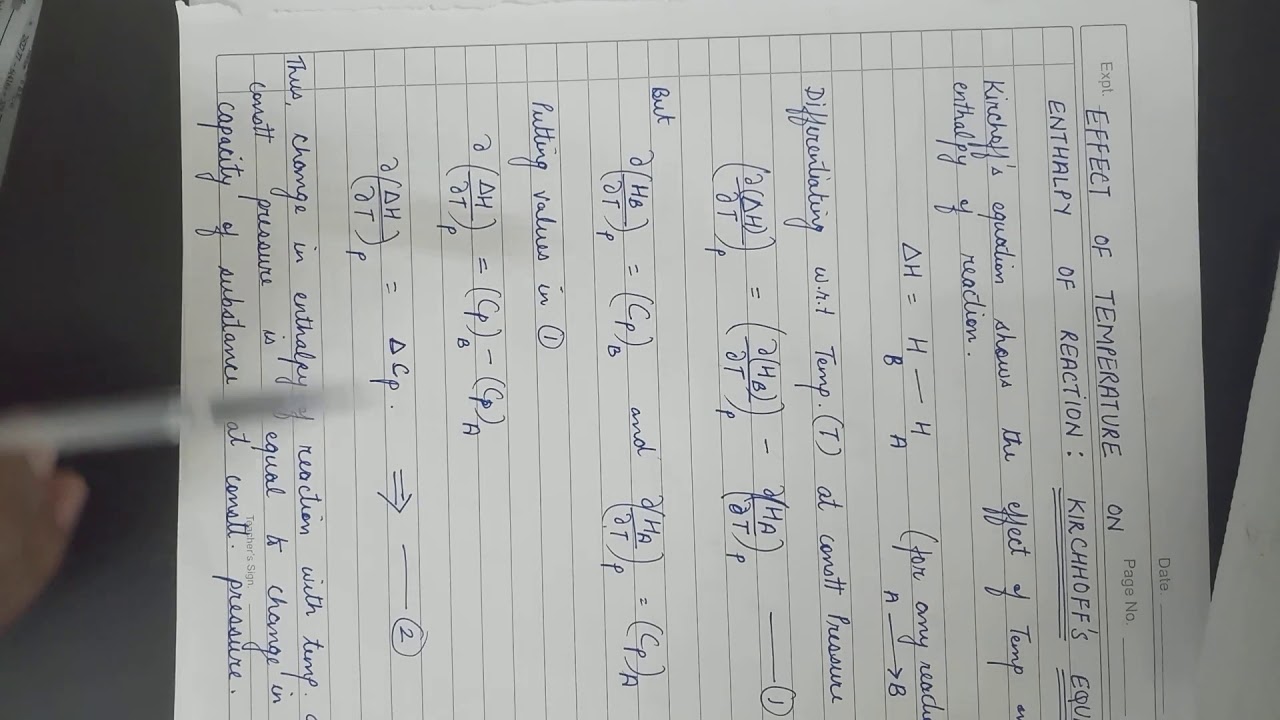 Date.
Page No.
Expt. EFFECT OF TEMPERATURE ON
ENTHALPY OF REACTION: KIRCHHOFF'S EQU
Kirchoff's equation shows the effect of Temp
enthalpy of reaction.
ΔH = H_B — H_A (for any
A ⟶ B
Differentiating w.r.t Temp. (T) at constt Pressure
(∂(ΔH)/∂T)_P = (∂(H_B)/∂T)_P − ∂(H_A/∂T)_P —— ①
But
∂(H_B/∂T)_P = (Cp)_B and ∂(H_A/∂T)_P = (Cp)_A
Putting values in ①
∂(ΔH/∂T)_P = (Cp)_B − (Cp)_A
∂(ΔH/∂T)_P = ΔCp. ⟹ —— ②
Thus, change in enthalpy of reaction with temp.
constt pressure is equal to change in
capacity of substance at constt. pressure.
Teacher's Sign.